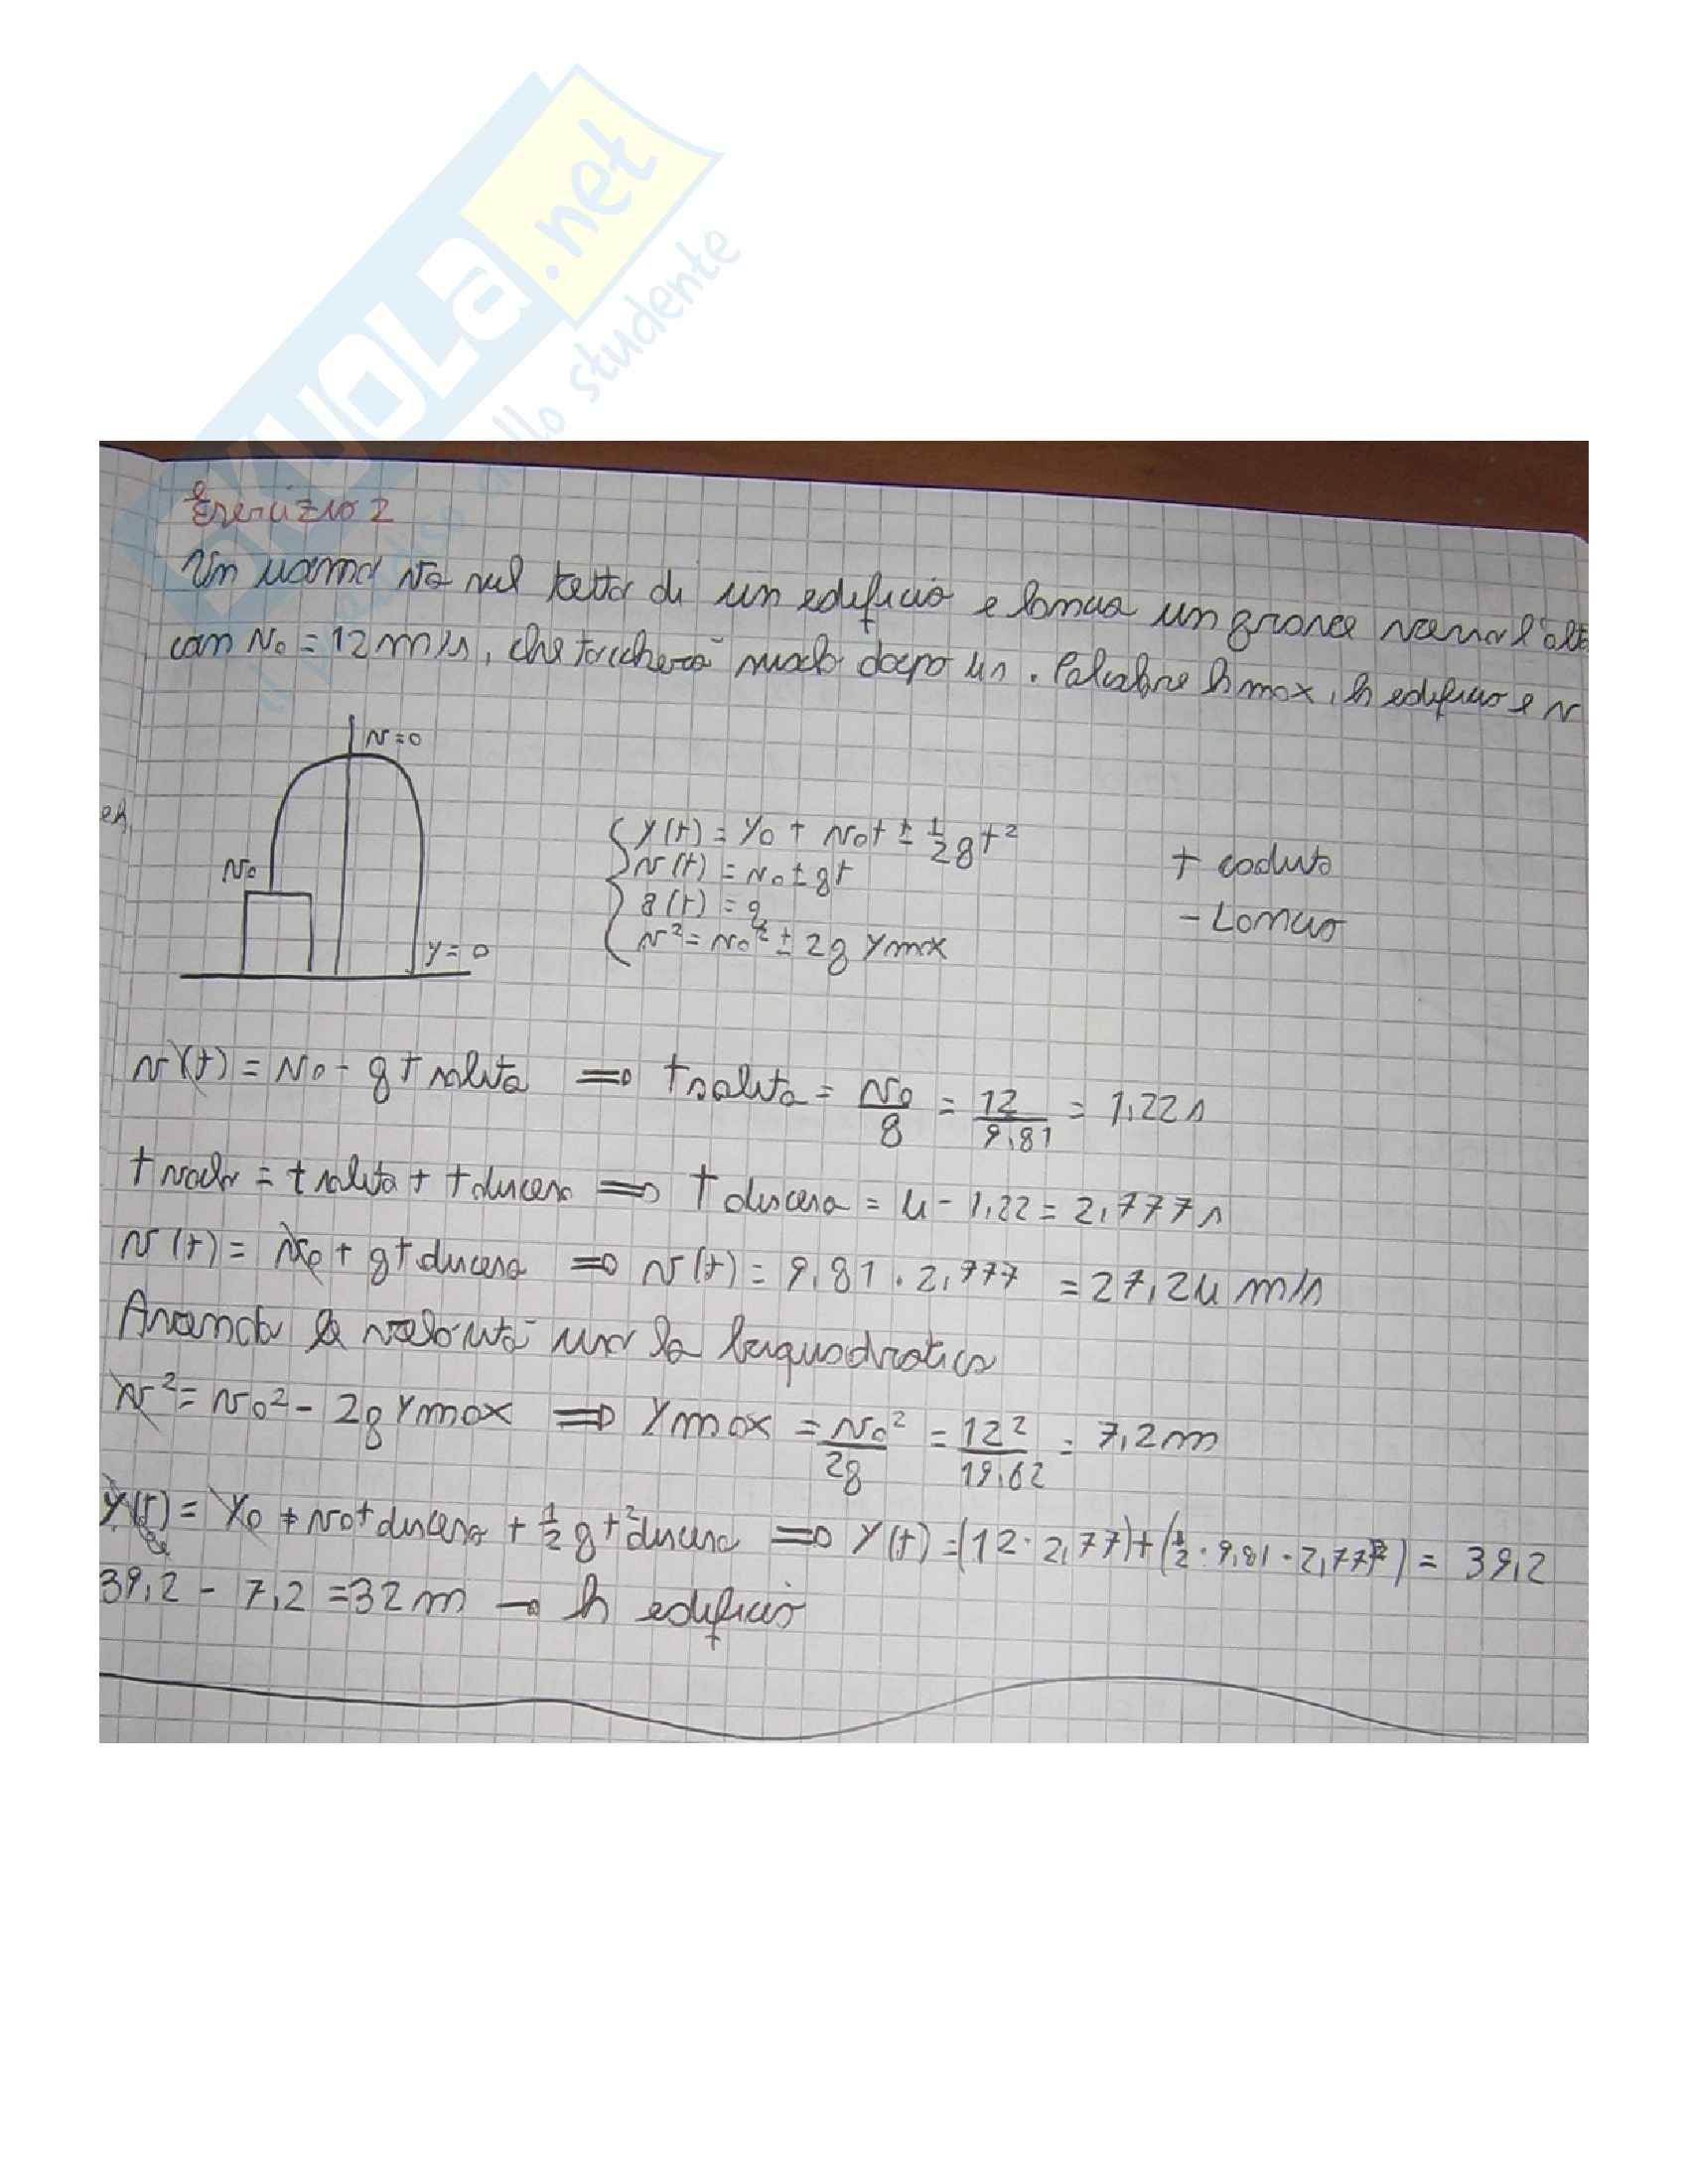 SKUOLA.net
il paradiso dello studente
Esercizio 2
Un uomo va sul tetto di un edificio e lancia un grave verso l'alto
con v₀ = 12 m/s, che toccherà suolo dopo 4s. Calcolare h max, h edificio e v
v=0
v₀
y=0
y(t) = y₀ + v₀t ± 1/2 gt²
v(t) = v₀ ± gt
a(t) = g
v² = v₀² ± 2g ymax
+ caduta
- Lancio
v(t) = v₀ - g t salita ⇒ t salita = v₀/g = 12/9,81 = 1,22 s
t volo = t salita + t discesa ⇒ t discesa = 4 - 1,22 = 2,777 s
v(t) = v₀ + g t discesa ⇒ v(t) = 9,81 · 2,777 = 27,24 m/s
Avendo la velocità uso la biquadratica
v² = v₀² - 2g ymax ⇒ ymax = v₀²/2g = 12²/19,62 = 7,2 m
y(t) = y₀ + v₀t discesa + 1/2 g t² discesa ⇒ y(t) = (12 · 2,77) + (1/2 · 9,81 · 2,77²) = 39,2
39,2 - 7,2 = 32 m → h edificio